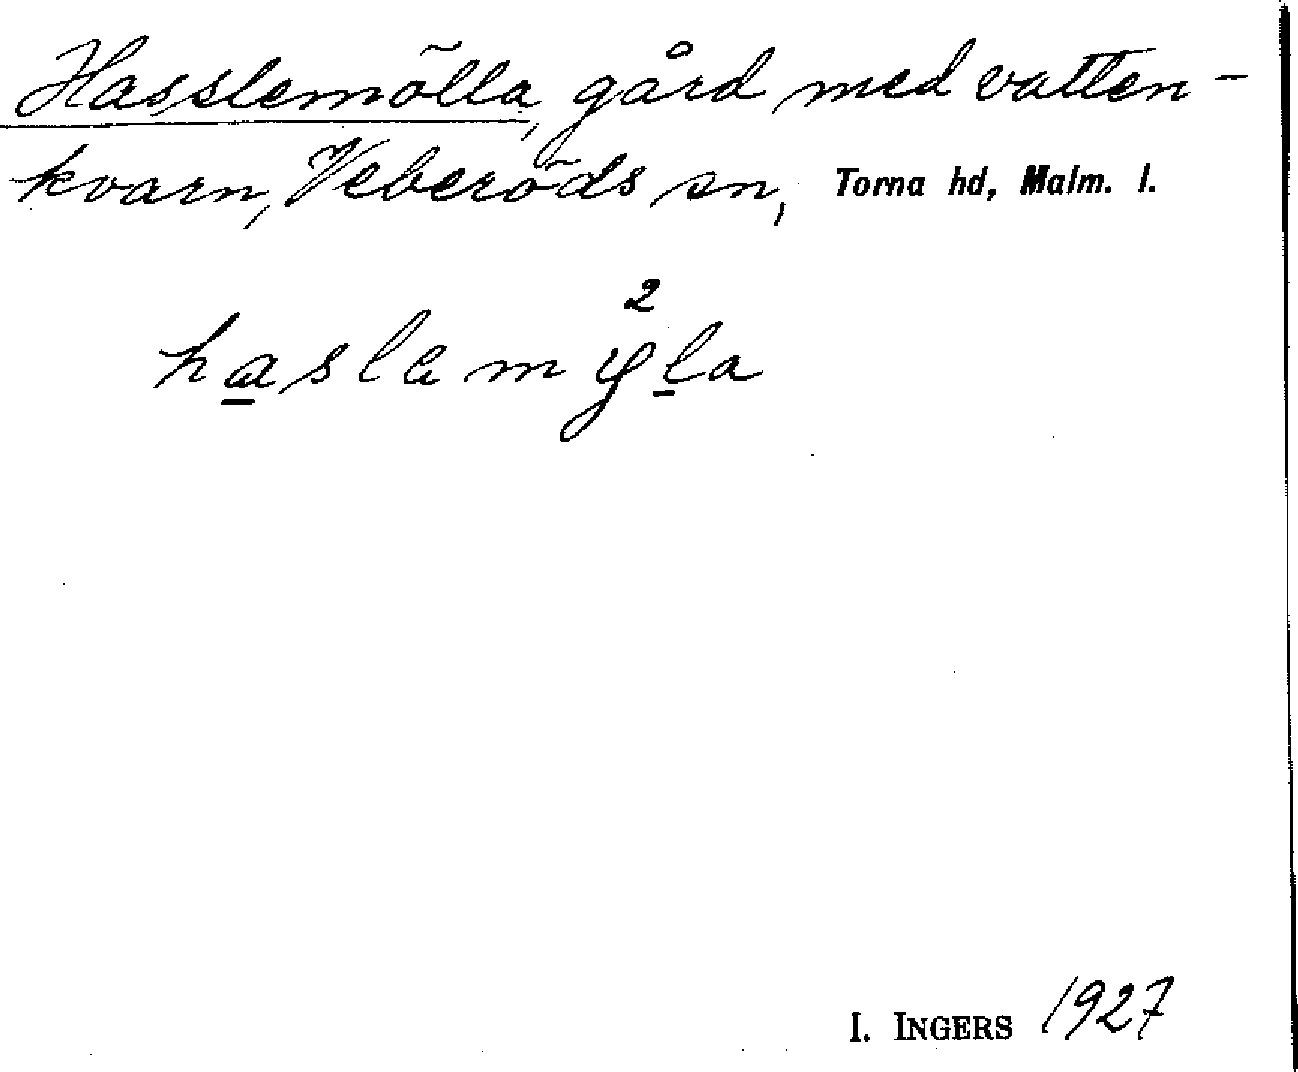 Hasslemölla, gård med vatten-
kvarn, Veberöds sn, Torna hd, Malm. l.
2
haslemyla
I. INGERS 1927